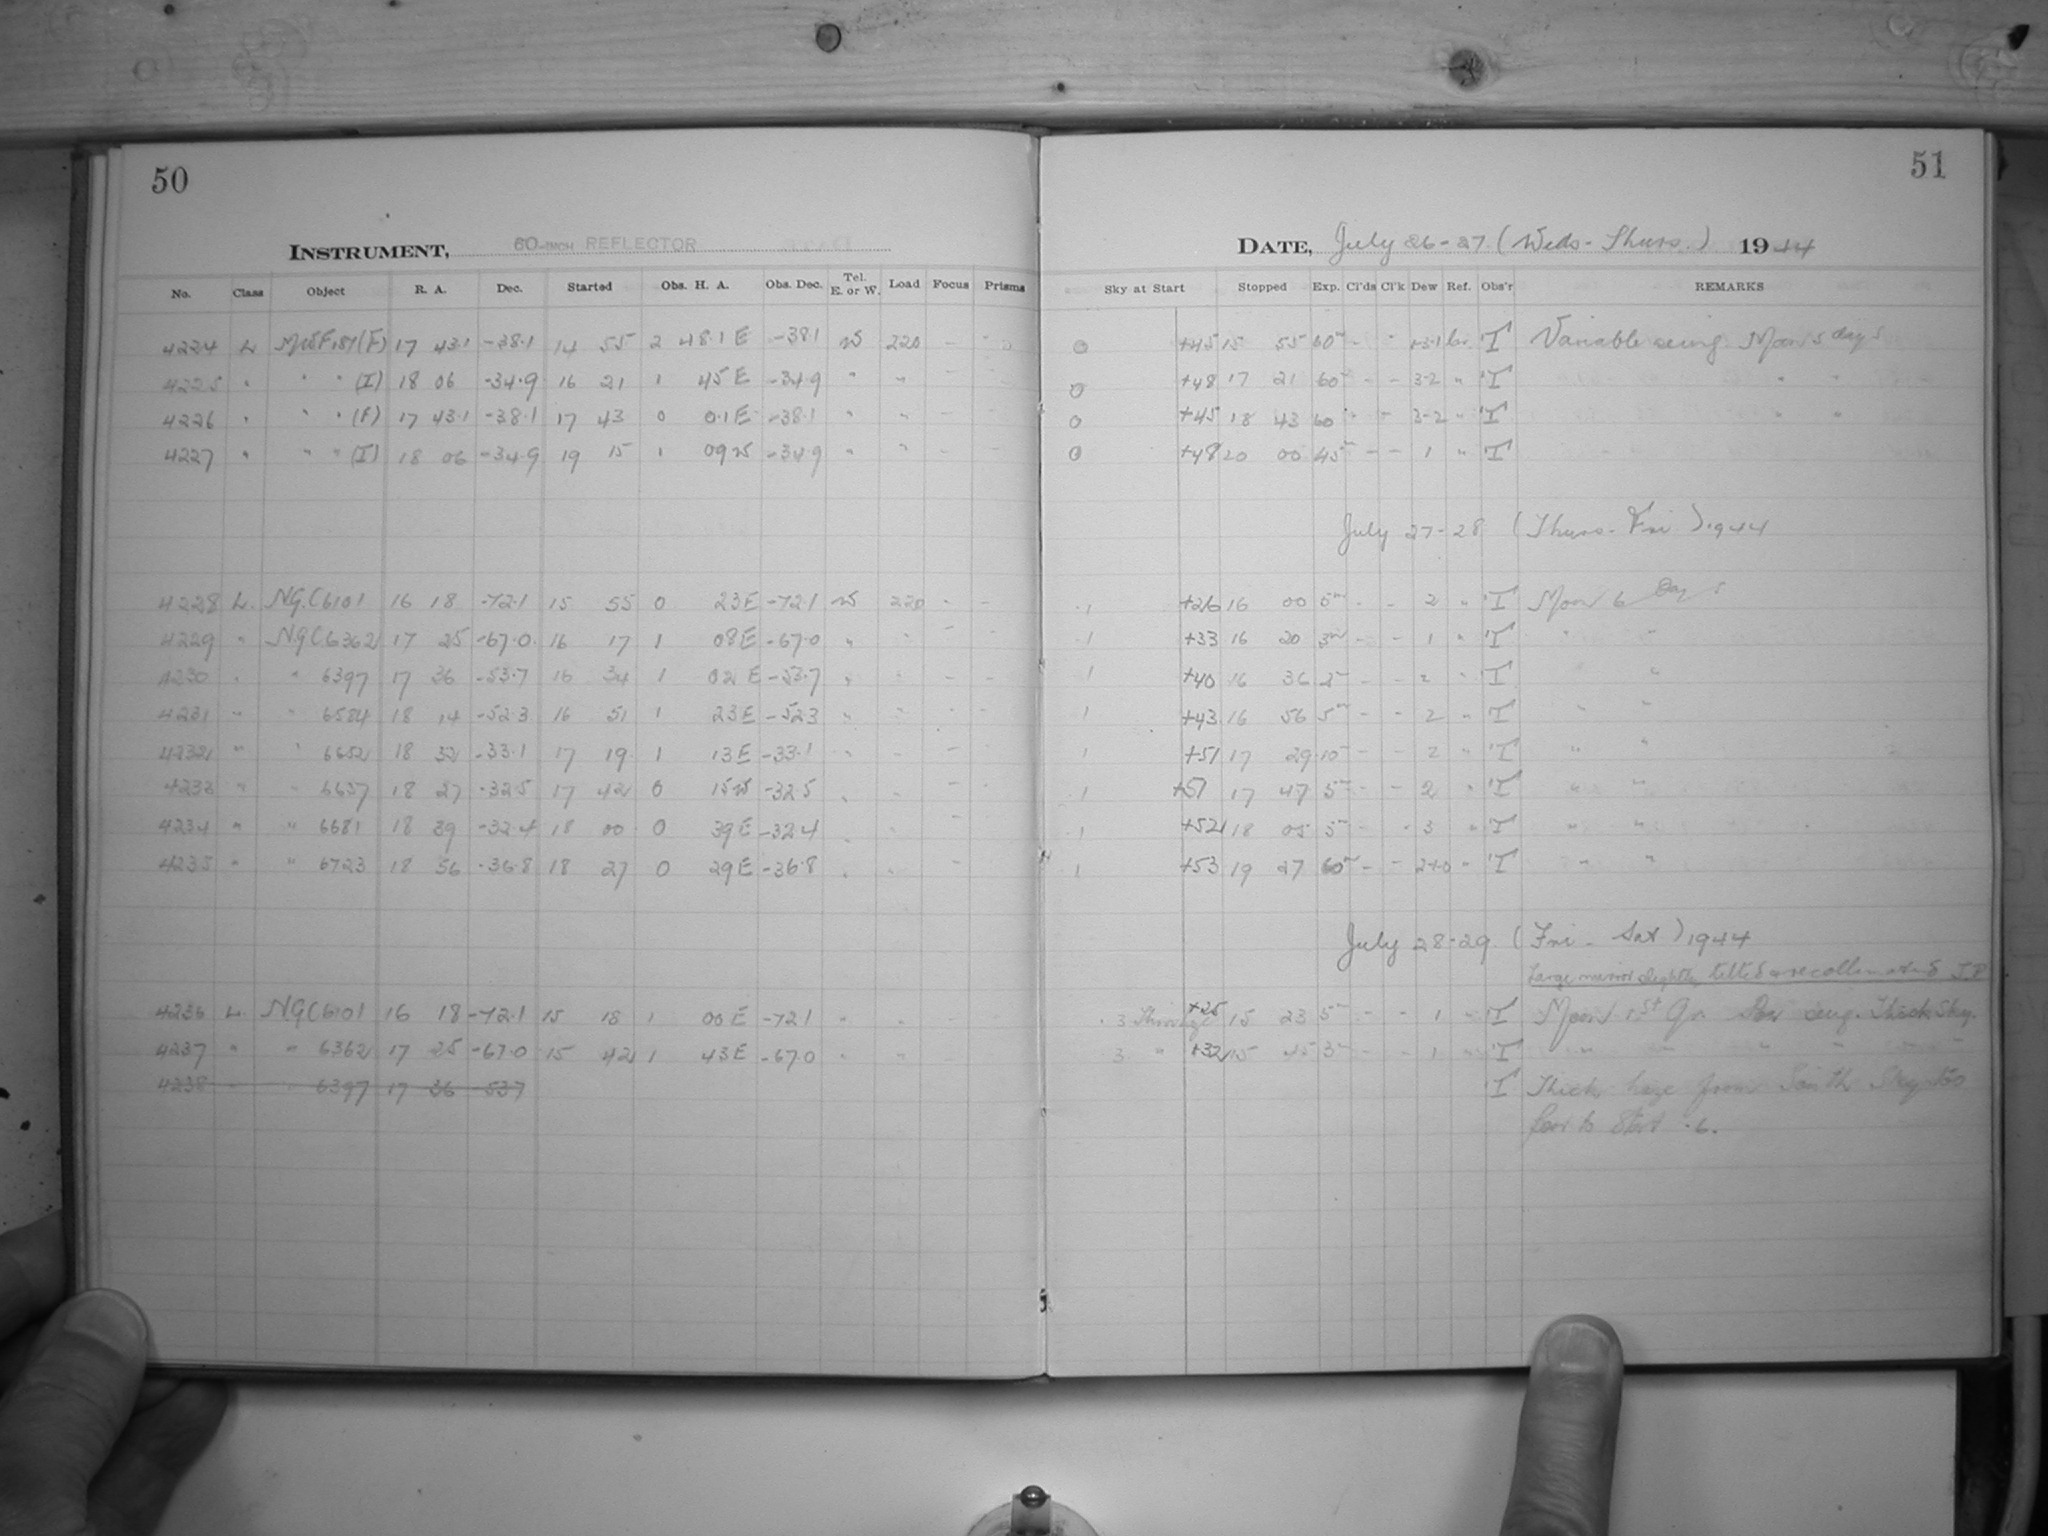 50
INSTRUMENT, 60-INCH REFLECTOR
No. Class Object R. A. Dec. Started Obs. H. A. Obs. Dec. Tel. E. or W. Load Focus Prisms
4224 L MWF187(F) 17 43.1 -38.1 14 55 2 48.1 E -38.1 W 220 - -
4225 " " " (I) 18 06 -34.9 16 21 1 45 E -34.9 " " - -
4226 " " " (F) 17 43.1 -38.1 17 43 0 0.1 E -38.1 " " - -
4227 " " " (I) 18 06 -34.9 19 15 1 09 W -34.9 " " - -
4228 L. NGC6101 16 18 -72.1 15 55 0 23 E -72.1 W 220 - -
4229 " NGC6362 17 25 -67.0 16 17 1 08 E -67.0 " " -
4230 " " 6397 17 36 -53.7 16 34 1 02 E -53.7 " " - -
4231 " " 6584 18 14 -52.3 16 51 1 23 E -52.3 " " - -
4232 " " 6652 18 32 -33.1 17 19 1 13 E -33.1 " " - -
4233 " " 6637 18 27 -32.5 17 42 0 15 W -32.5 " " - -
4234 " " 6681 18 39 -32.4 18 00 0 39 E -32.4 " " -
4235 " " 6723 18 56 -36.8 18 27 0 29 E -36.8 " " -
4236 L. NGC6101 16 18 -72.1 15 18 1 00 E -72.1 " " -
4237 " " 6362 17 25 -67.0 15 42 1 43 E -67.0 " "
4238 " " 6397 17 36 -53.7
51
DATE, July 26-27 (Weds-Thurs.) 1944
Sky at Start Stopped Exp. Cl'ds Cl'k Dew Ref. Obs'r REMARKS
0 +45 15 55 60m - - T Variable seeing Moon 5 days
0 +48 17 21 60m - - 3-2 " T " "
0 +45 18 43 60 " - 3-2 " T " "
0 +48 20 00 45m - - 1 " T
July 27-28 (Thurs-Fri.) 1944
.1 +26 16 00 5m - - 2 " T Moon 6 Days
.1 +33 16 20 3m - - 1 " T " "
.1 +40 16 36 2m - - 2 " T "
.1 +43 16 56 5m - - 2 " T " "
.1 +51 17 29 10m - - 2 " T " "
.1 +51 17 47 5m - - 2 " T " "
.1 +52 18 05 5m - - 3 " T " "
.1 +53 19 27 60m - - 2+0 " T " "
July 28-29 (Fri - Sat) 1944
Large mirror slightly tilted & recollimated J.P
.3 Through +25 15 23 5m - - 1 " T Moon 1st Qr. Poor seeing. Thick Sky.
.3 " +32 15 45 3m - - 1 " T " " " "
T Thick haze from South Sky too
poor to start .6.